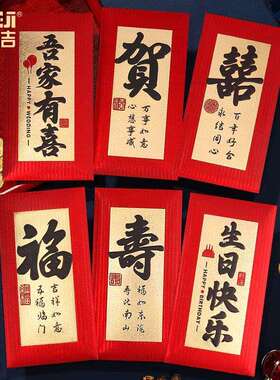 吉
吾家有喜
HAPPY WEDDING
贺
万事如意
心想事成
囍
百年好合
永结同心
福
吉祥如意
五福临门
寿
福如东海
寿比南山
生日快乐
HAPPY BIRTHDAY